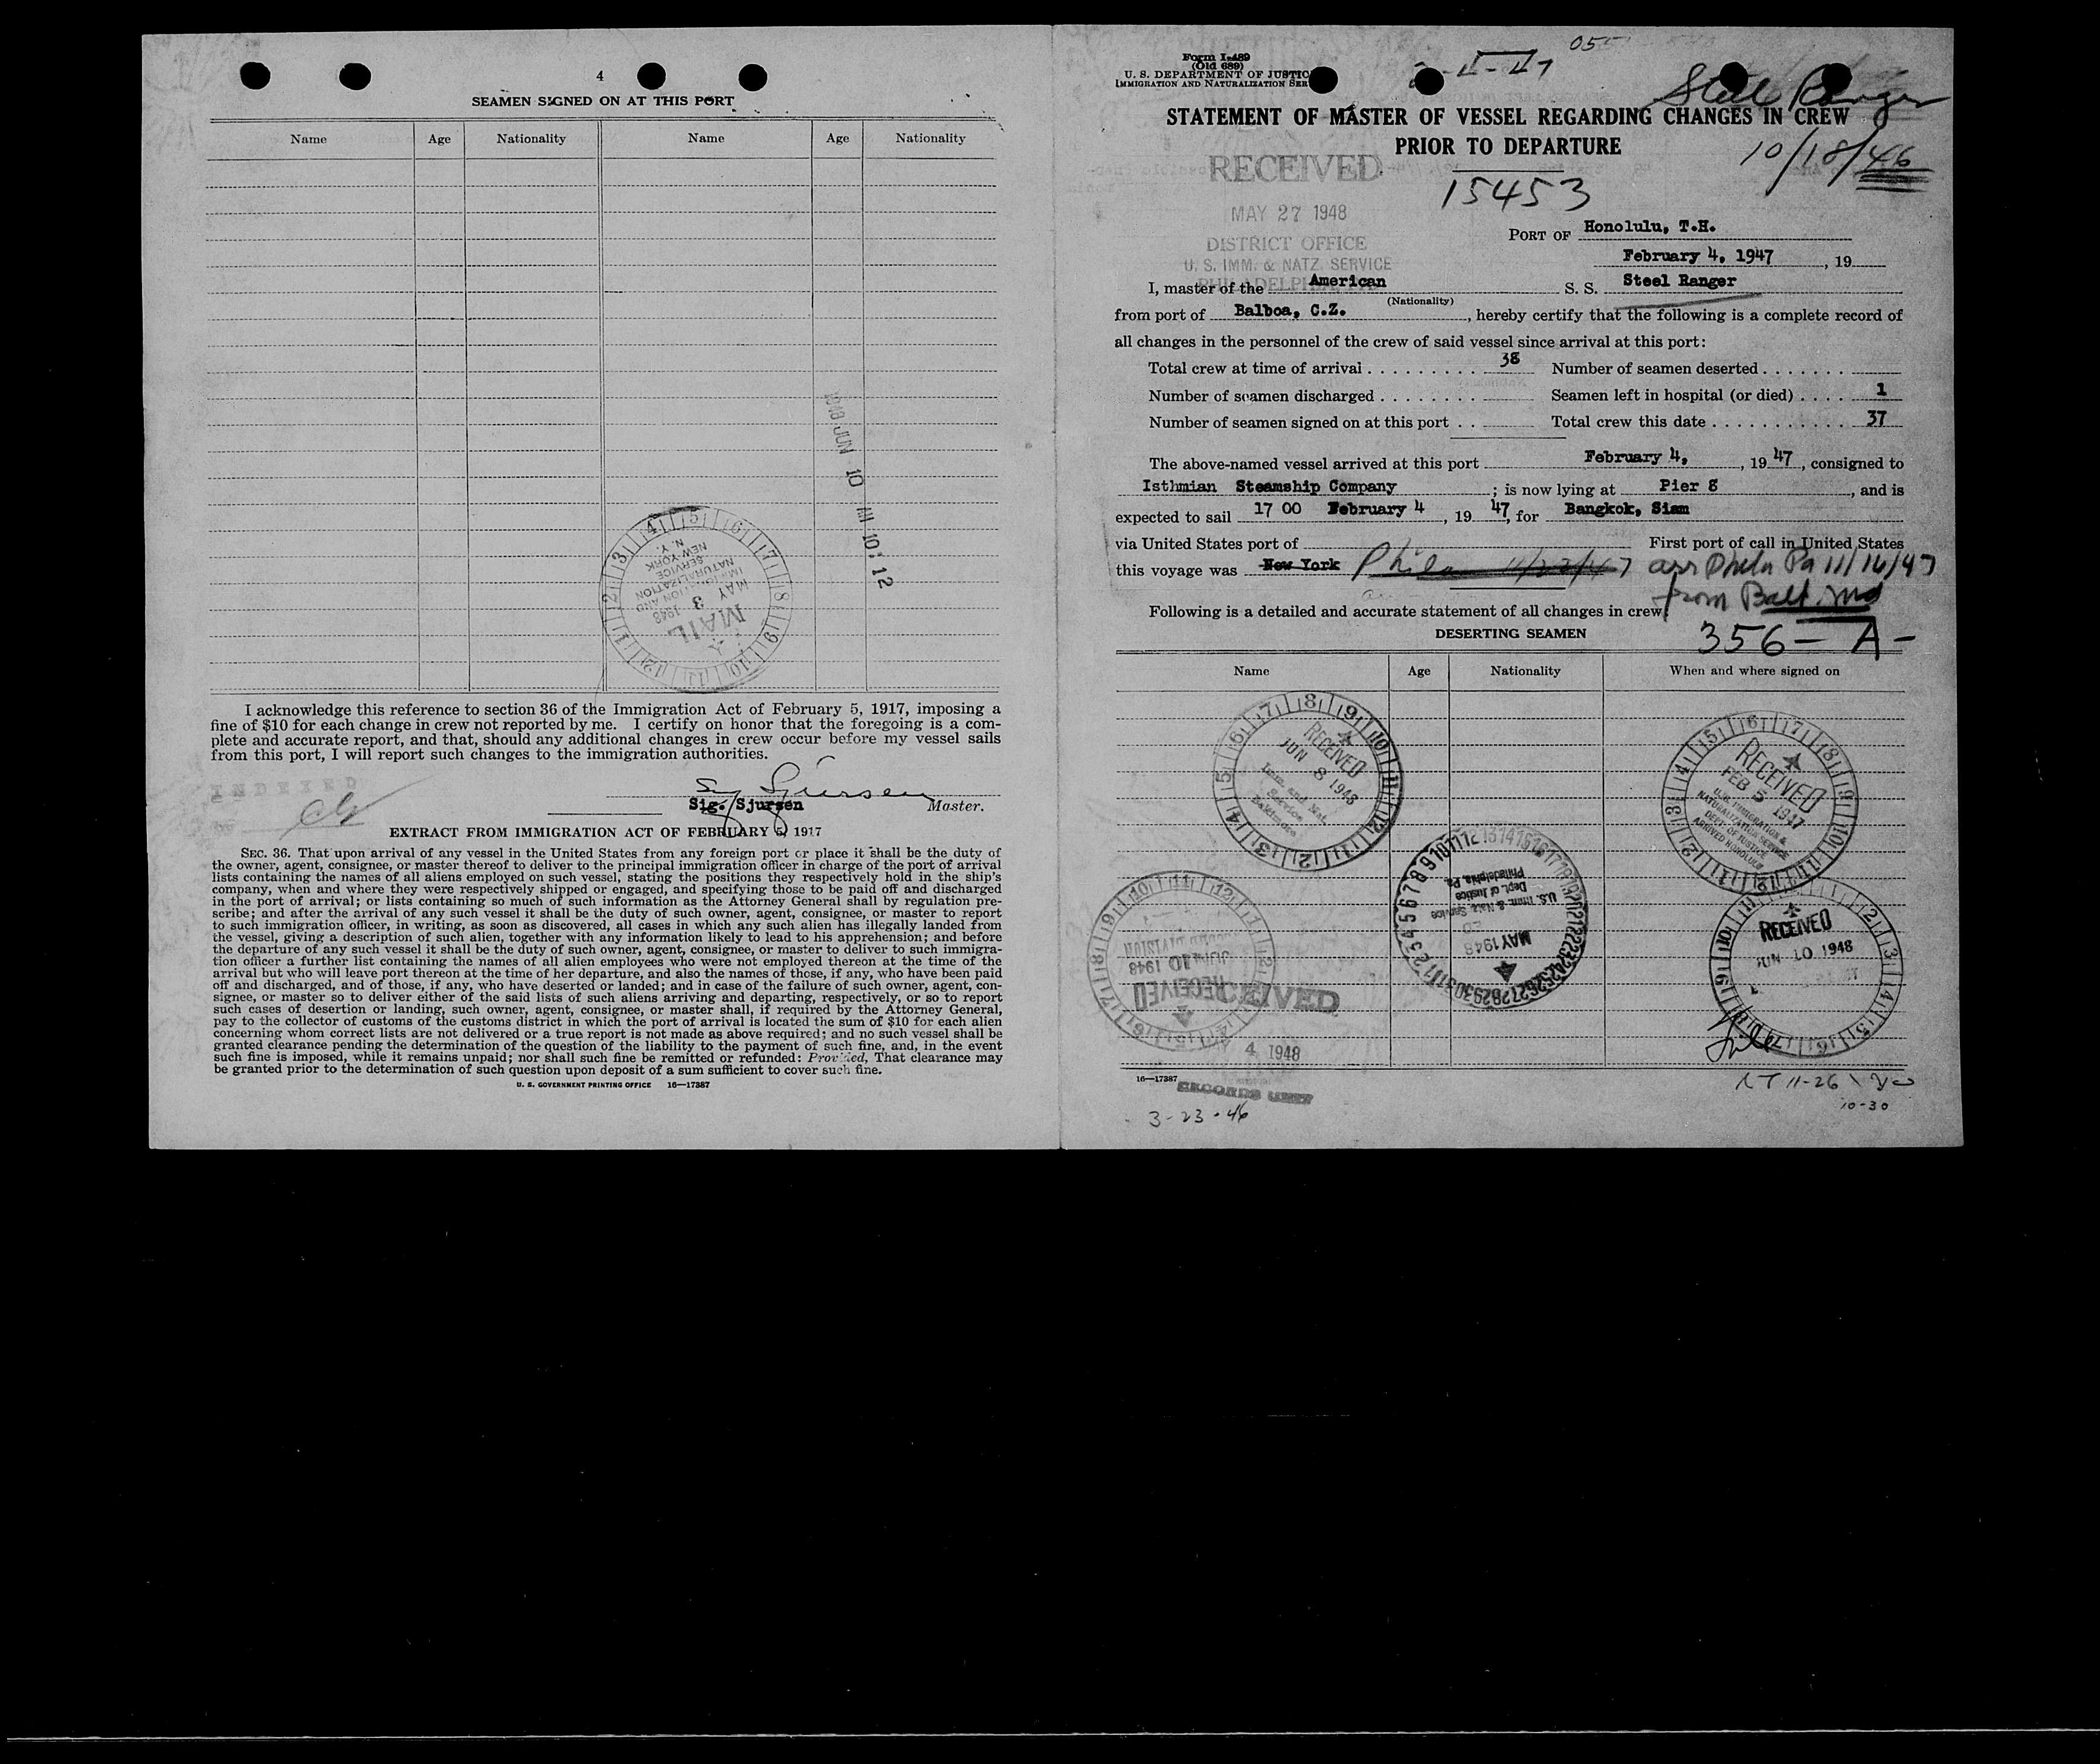 4
SEAMEN SIGNED ON AT THIS PORT
Name Age Nationality Name Age Nationality
1948 JUN 10 10:12
NEW YORK N.Y.
IMMIGRATION AND NATURALIZATION SERVICE
MAY 3 1948
MAIL
I acknowledge this reference to section 36 of the Immigration Act of February 5, 1917, imposing a
fine of $10 for each change in crew not reported by me. I certify on honor that the foregoing is a com-
plete and accurate report, and that, should any additional changes in crew occur before my vessel sails
from this port, I will report such changes to the immigration authorities.
INDEXED
Sig Sjursen
Sig. Sjursen Master.
EXTRACT FROM IMMIGRATION ACT OF FEBRUARY 5, 1917
SEC. 36. That upon arrival of any vessel in the United States from any foreign port or place it shall be the duty of
the owner, agent, consignee, or master thereof to deliver to the principal immigration officer in charge of the port of arrival
lists containing the names of all aliens employed on such vessel, stating the positions they respectively hold in the ship's
company, when and where they were respectively shipped or engaged, and specifying those to be paid off and discharged
in the port of arrival; or lists containing so much of such information as the Attorney General shall by regulation pre-
scribe; and after the arrival of any such vessel it shall be the duty of such owner, agent, consignee, or master to report
to such immigration officer, in writing, as soon as discovered, all cases in which any such alien has illegally landed from
the vessel, giving a description of such alien, together with any information likely to lead to his apprehension; and before
the departure of any such vessel it shall be the duty of such owner, agent, consignee, or master to deliver to such immigra-
tion officer a further list containing the names of all alien employees who were not employed thereon at the time of the
arrival but who will leave port thereon at the time of her departure, and also the names of those, if any, who have been paid
off and discharged, and of those, if any, who have deserted or landed; and in case of the failure of such owner, agent, con-
signee, or master so to deliver either of the said lists of such aliens arriving and departing, respectively, or so to report
such cases of desertion or landing, such owner, agent, consignee, or master shall, if required by the Attorney General,
pay to the collector of customs of the customs district in which the port of arrival is located the sum of $10 for each alien
concerning whom correct lists are not delivered or a true report is not made as above required; and no such vessel shall be
granted clearance pending the determination of the question of the liability to the payment of such fine, and, in the event
such fine is imposed, while it remains unpaid; nor shall such fine be remitted or refunded: Provided, That clearance may
be granted prior to the determination of such question upon deposit of a sum sufficient to cover such fine.
U. S. GOVERNMENT PRINTING OFFICE 16—17387
Form I-489
(Old 689)
U. S. DEPARTMENT OF JUSTIC
IMMIGRATION AND NATURALIZATION SER
Steel Ranger
STATEMENT OF MASTER OF VESSEL REGARDING CHANGES IN CREW
PRIOR TO DEPARTURE
10/18/46
15453
RECEIVED
MAY 27 1948
DISTRICT OFFICE
U. S. IMM. & NATZ. SERVICE
PHILADELPHIA
PORT OF Honolulu, T.H.
February 4, 1947, 19
I, master of the American S. S. Steel Ranger
(Nationality)
from port of Balboa, C.Z., hereby certify that the following is a complete record of
all changes in the personnel of the crew of said vessel since arrival at this port:
Total crew at time of arrival . . . . . . . . . 38 Number of seamen deserted . . . . . . .
Number of seamen discharged . . . . . . . . Seamen left in hospital (or died) . . . . 1
Number of seamen signed on at this port . . Total crew this date . . . . . . . . . . . 37
The above-named vessel arrived at this port February 4, , 19 47, consigned to
Isthmian Steamship Company ; is now lying at Pier 8 , and is
expected to sail 17 00 February 4 , 19 47, for Bangkok, Siam
via United States port of First port of call in United States
this voyage was New York Phila 11/22/47 arr Phila Pa 11/16/47
from Balt. Md
Following is a detailed and accurate statement of all changes in crew
DESERTING SEAMEN 356 — A —
Name Age Nationality When and where signed on
RECEIVED JUN 8 1948 Imm. and Nat. Service Baltimore
RECEIVED FEB 5 1947 U.S. IMMIGRATION & NATURALIZATION SERVICE DEPT. OF JUSTICE ARRIVED HONOLULU
MAY 1948 U.S. Imm. & Natz. Service Dept. of Justice Philadelphia, Pa.
RECEIVED JUN 10 1948
RECEIVED JUN 10 1948
RECEIVED
4 1948
RECORDS UNIT
16—17387
3-23-46
11-26
10-30